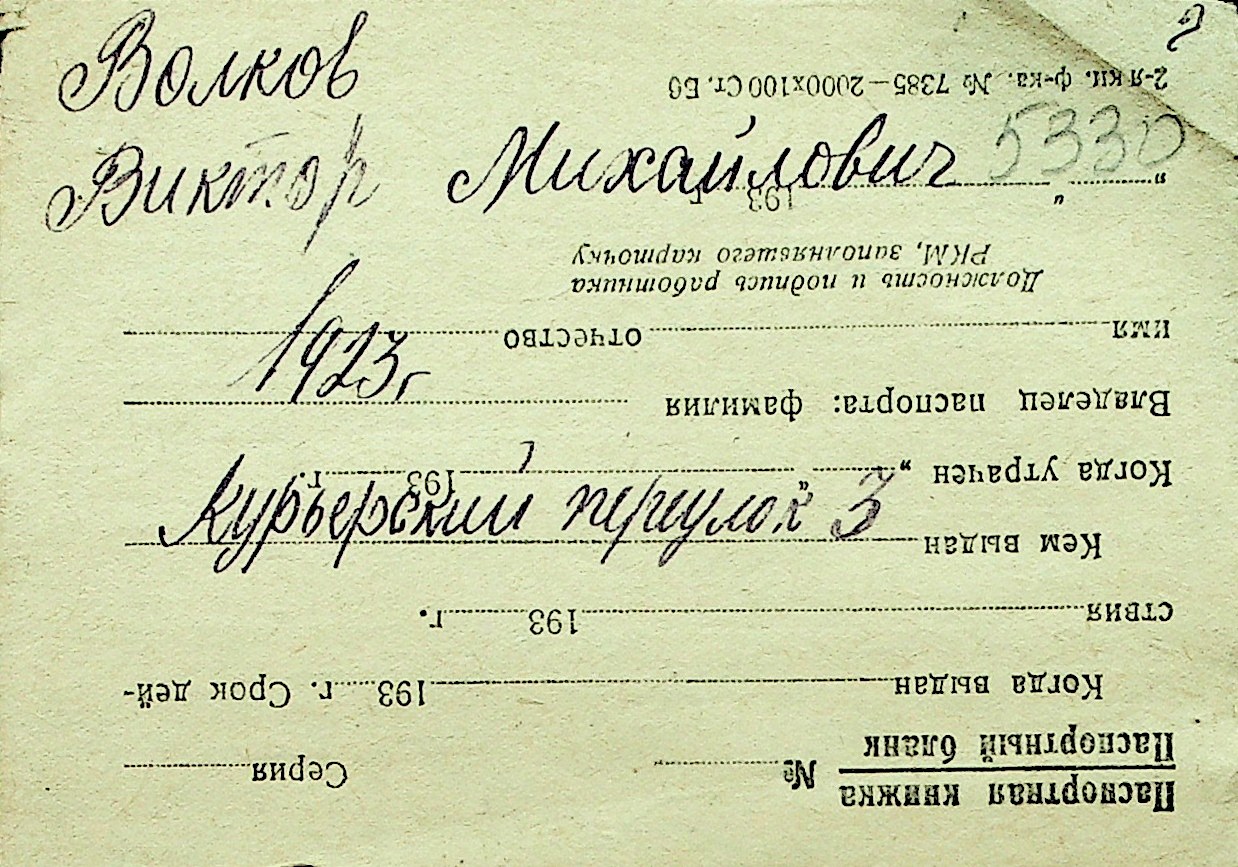 Волков
Виктор Михайлович 5330
1923 г
Курьерский переулок 3
Паспортная книжка
Паспортный бланк
№ Серия
Когда выдан 193 г. Срок дей-
ствия 193 г.
Кем выдан
Когда утрачен „ “ 193 г.
Владелец паспорта: фамилия
имя отчество
Должность и подпись работника
РКМ, заполнявшего карточку
„ “ 193 г.
2-я кн. ф-ка. № 7385—2000х100 Ст. Б6